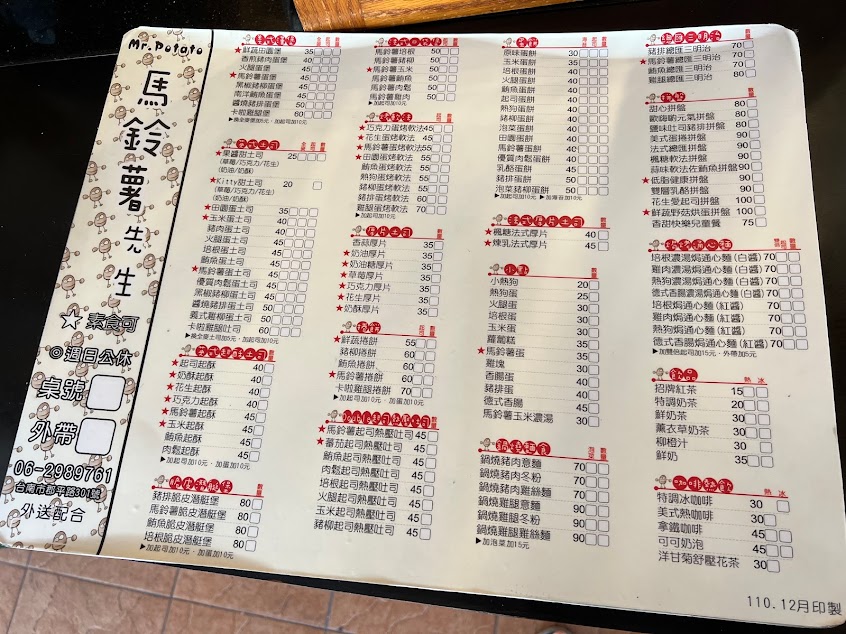 Mr.Potato
馬鈴薯先生
☆素食可
◎週日公休
桌號
外帶
06-2989761
台南市郡平路301號
外送配合
美式漢堡
★鮮蔬田園堡 35
香煎豬肉蛋堡 40
火腿蛋堡 45
★馬鈴薯蛋堡 45
黑椒豬柳蛋堡 50
南洋鮪魚蛋堡 50
醬燒豬排蛋堡 50
卡啦雞腿堡 60
英式土司
★果醬甜土司 25
(草莓/巧克力/花生)
(奶油/奶酥)
★Kitty甜土司 20
(草莓/巧克力/花生)
(奶油/奶酥)
★田園蛋土司 35
★玉米蛋土司 40
豬肉蛋土司 40
火腿蛋土司 40
培根蛋土司 40
鮪魚蛋土司 40
★馬鈴薯蛋土司 45
優質肉鬆蛋土司 45
黑椒豬柳蛋土司 45
醬燒豬排蛋土司 50
義式雞柳蛋土司 50
卡啦雞腿吐司 60
★起司起酥 40
★奶酥起酥 40
★花生起酥 40
★巧克力起酥 40
★馬鈴薯起酥 50
★玉米起酥 50
鮪魚起酥 50
肉鬆起酥 50
脆皮潛艇堡
豬排脆皮潛艇堡 80
馬鈴薯脆皮潛艇堡 80
鮪魚脆皮潛艇堡 80
培根脆皮潛艇堡 80
▶加起司加10元‧加蛋加10元
馬鈴薯培根 50
馬鈴薯豬柳 50
★馬鈴薯玉米 50
馬鈴薯鮪魚 50
馬鈴薯肉鬆 50
馬鈴薯雞肉 50
▶加起司加10元
烤軟法
★巧克力蛋烤軟法 45
★花生蛋烤軟法 45
★馬鈴薯蛋烤軟法 55
★田園蛋烤軟法 55
鮪魚蛋烤軟法 55
熱狗蛋烤軟法 55
豬柳蛋烤軟法 60
豬排蛋烤軟法 60
雞腿蛋烤軟法 70
▶加起司加10元
厚片土司
香蒜厚片 35
★奶油厚片 35
★奶油糖厚片 35
★草莓厚片 35
★巧克力厚片 35
★花生厚片 35
★奶酥厚片 35
捲餅
★鮮蔬捲餅 55
豬柳捲餅 60
鮪魚捲餅 60
★馬鈴薯捲餅 60
卡啦雞腿捲餅 70
▶加起司加10元‧加蛋加10元
★馬鈴薯起司熱壓吐司 45
★蕃茄起司熱壓吐司 45
鮪魚起司熱壓吐司 45
肉鬆起司熱壓吐司 45
培根起司熱壓吐司 45
火腿起司熱壓吐司 45
玉米起司熱壓吐司 45
豬柳起司熱壓吐司 45
蛋餅
原味蛋餅 30
玉米蛋餅 35
培根蛋餅 40
火腿蛋餅 40
鮪魚蛋餅 40
起司蛋餅 40
熱狗蛋餅 40
豬柳蛋餅 40
泡菜蛋餅 40
田園蛋餅 40
馬鈴薯蛋餅 40
優質肉鬆蛋餅 40
乳酪蛋餅 50
豬排蛋餅 50
泡菜豬柳蛋餅 50
▶加起司加10元‧加薯泥加10元
法式厚片土司
★楓糖法式厚片 40
★煉乳法式厚片 45
小點
小熱狗 20
熱狗蛋 25
火腿蛋 30
培根蛋 30
玉米蛋 30
蘿蔔糕 35
★馬鈴薯蛋 30
雞塊 30
香腸蛋 40
豬排蛋 40
德式香腸 45
馬鈴薯玉米濃湯 30
鍋燒麵食
鍋燒豬肉意麵 70
鍋燒豬肉冬粉 70
鍋燒豬肉雞絲麵 70
鍋燒雞腿意麵 90
鍋燒雞腿冬粉 90
鍋燒雞腿雞絲麵 90
▶加泡菜加15元
總匯三明治
豬排總匯三明治 70
★馬鈴薯總匯三明治 70
鮪魚總匯三明治 70
雞腿總匯三明治 80
拼盤
甜心拼盤 80
歐嗨喲元氣拼盤 80
鹽味吐司豬排拼盤 80
美式蛋捲拼盤 90
法式總匯拼盤 90
楓糖軟法拼盤 90
蒜味軟法佐鮪魚拼盤 90
★低脂健康拼盤 90
雙層乳酪拼盤 90
花生愛起司拼盤 100
★鮮蔬野菇烘蛋拼盤 100
香甜快樂兒童餐 75
培根濃湯焗通心麵(白醬) 70
雞肉濃湯焗通心麵(白醬) 70
熱狗濃湯焗通心麵(白醬) 70
德式香腸濃湯焗通心麵(白醬) 70
培根焗通心麵(紅醬) 70
雞肉焗通心麵(紅醬) 70
熱狗焗通心麵(紅醬) 70
德式香腸焗通心麵(紅醬) 70
▶加雙倍起司加15元‧外帶加5元
飲品
招牌紅茶 15
特調奶茶 20
鮮奶茶 30
薰衣草奶茶 30
柳橙汁 30
鮮奶 35
特調冰咖啡 30
美式熱咖啡 30
拿鐵咖啡 45
可可奶泡 45
洋甘菊舒壓花茶 30
110.12月印製